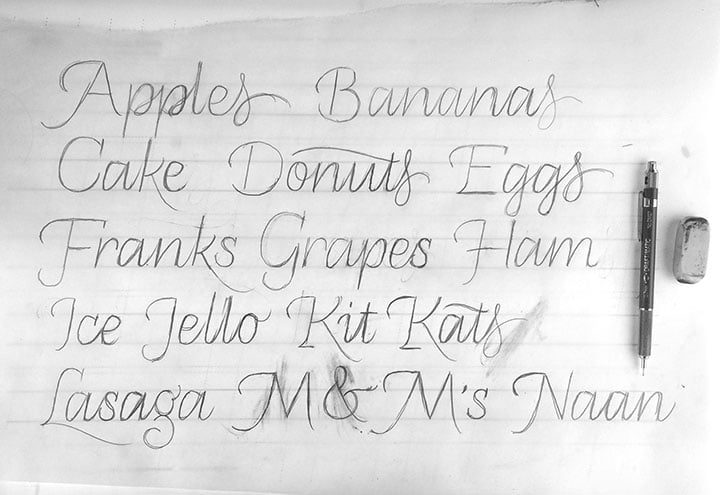 Apples Bananas
Cake Donuts Eggs
Franks Grapes Ham
Ice Jello Kit Kats
Lasaga M&M's Naan